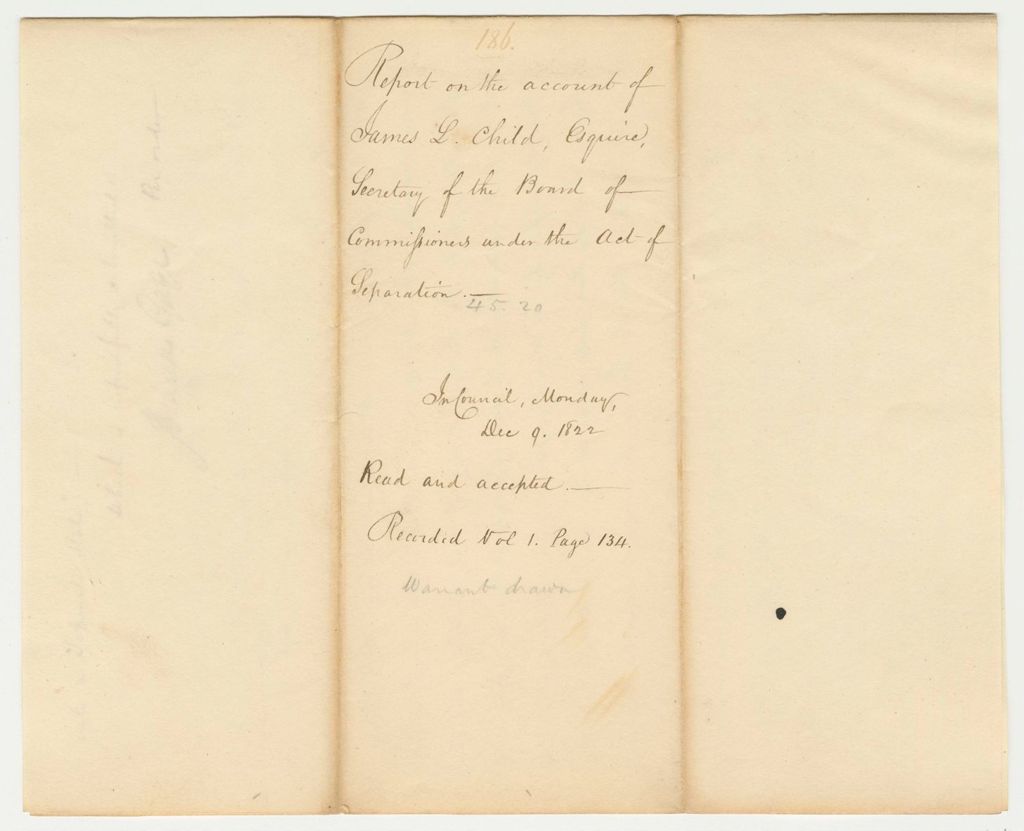 186.
Report on the account of
James L. Child, Esquire,
Secretary of the Board of
Commissioners under the Act of
Separation.—
45.20
In Council, Monday,
Dec 9. 1822
Read and accepted.—
Recorded Vol 1. Page 134.
Warrant drawn